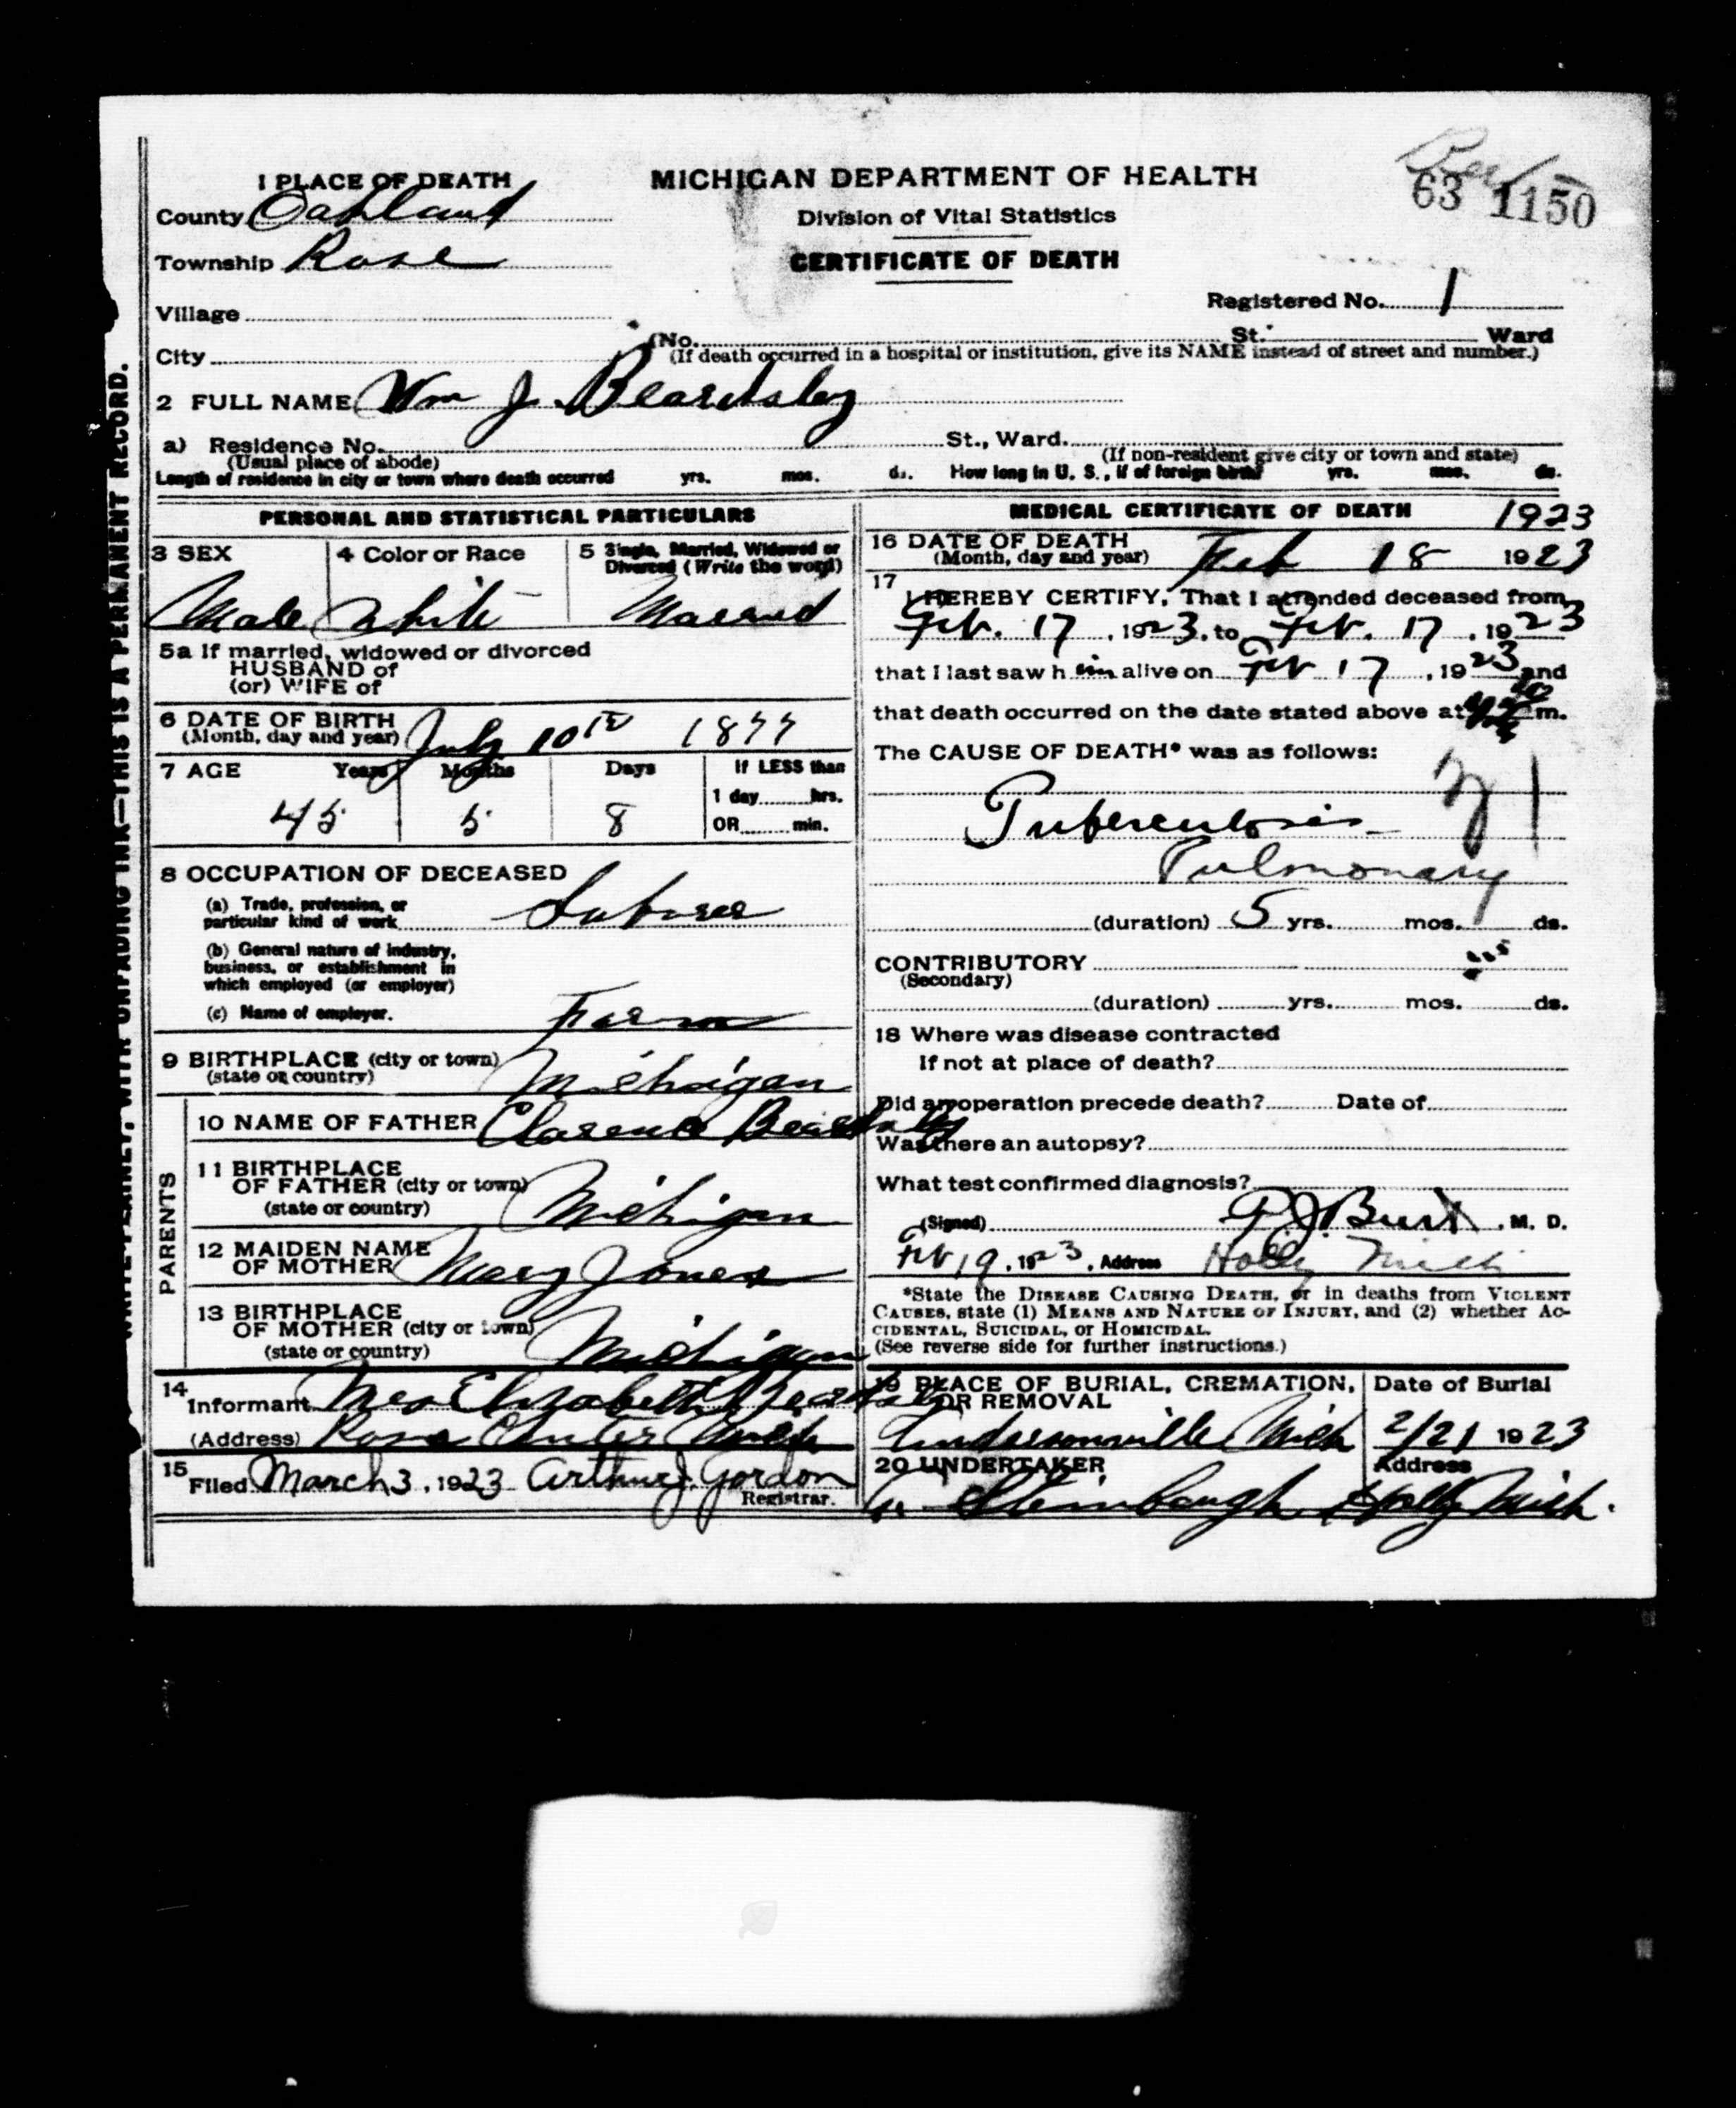 1 PLACE OF DEATH
County Oakland
Township Rose
Village
City
MICHIGAN DEPARTMENT OF HEALTH
Division of Vital Statistics
CERTIFICATE OF DEATH
63 1150
Registered No. 1
(No. St. Ward
(If death occurred in a hospital or institution, give its NAME instead of street and number.)
2 FULL NAME Wm J. Beardsley
a) Residence No. St., Ward.
(Usual place of abode) (If non-resident give city or town and state)
Length of residence in city or town where death occurred yrs. mos. ds. How long in U. S., if of foreign birth? yrs. mos. ds.
PERSONAL AND STATISTICAL PARTICULARS
3 SEX
Male
4 Color or Race
White
5 Single, Married, Widowed or
Divorced (Write the word)
Married
5a If married, widowed or divorced
HUSBAND of
(or) WIFE of
6 DATE OF BIRTH
(Month, day and year) July 10th 1877
7 AGE Years Months Days If LESS than
1 day hrs.
45 5 8 OR min.
8 OCCUPATION OF DECEASED
(a) Trade, profession, or
particular kind of work Laborer
(b) General nature of industry,
business, or establishment in
which employed (or employer)
(c) Name of employer. Farm
9 BIRTHPLACE (city or town)
(state or country) Michigan
PARENTS
10 NAME OF FATHER Clarence Beardsley
11 BIRTHPLACE
OF FATHER (city or town)
(state or country) Michigan
12 MAIDEN NAME
OF MOTHER Mary Jones
13 BIRTHPLACE
OF MOTHER (city or town)
(state or country) Michigan
14
Informant Mrs Elizabeth Beardsley
(Address) Rose Center Mich
15
Filed March 3, 1923 Arthur J. Gordon
Registrar.
MEDICAL CERTIFICATE OF DEATH 1923
16 DATE OF DEATH
(Month, day and year) Feb 18 1923
17
I HEREBY CERTIFY, That I attended deceased from
Feb. 17, 1923, to Feb. 17, 1923
that I last saw him alive on Feb 17, 1923 and
that death occurred on the date stated above at m.
The CAUSE OF DEATH* was as follows:
31
Tuberculosis
Pulmonary
(duration) 5 yrs. mos. ds.
CONTRIBUTORY
(Secondary)
(duration) yrs. mos. ds.
18 Where was disease contracted
If not at place of death?
Did an operation precede death? Date of
Was there an autopsy?
What test confirmed diagnosis?
(Signed) Burt, M. D.
Feb 19, 1923, Address Holly Mich
*State the DISEASE CAUSING DEATH, or in deaths from VIOLENT
CAUSES, state (1) MEANS AND NATURE OF INJURY, and (2) whether AC-
CIDENTAL, SUICIDAL, or HOMICIDAL.
(See reverse side for further instructions.)
19 PLACE OF BURIAL, CREMATION,
OR REMOVAL
Andersonville Mich
Date of Burial
2/21 1923
20 UNDERTAKER
Steinbaugh
Address
Holly Mich.
THIS IS A PERMANENT RECORD.